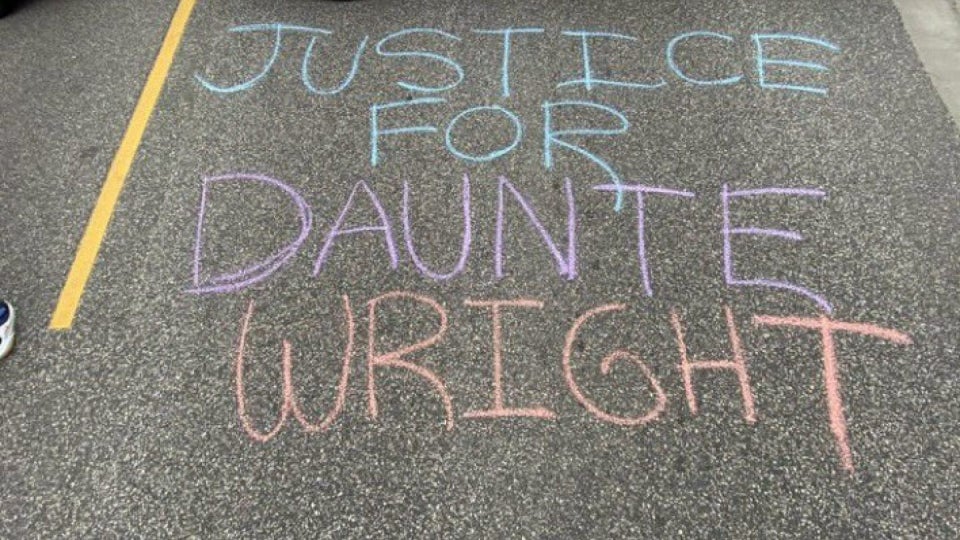 JUSTICE
FOR
DAUNTE
WRIGHT